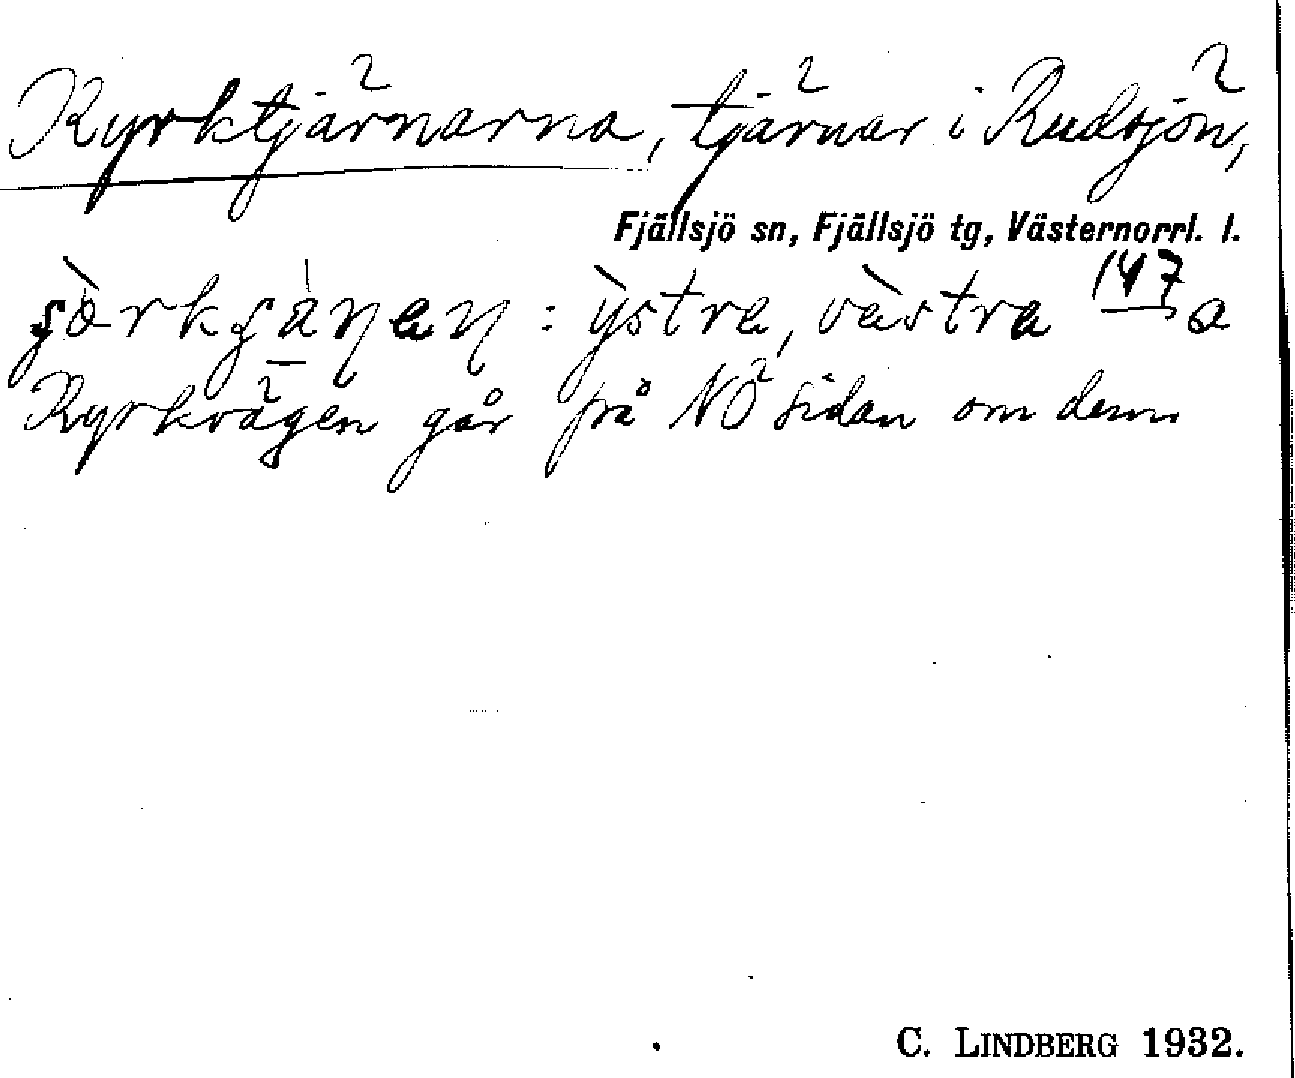 Kyrktjärnarna, tjärnar i Rudsjön,
Fjällsjö sn, Fjällsjö tg, Västernorrl. l.
: ỳstra, vàstra 147 a
Kyrkvägen går på NÖ sidan om dem
C. LINDBERG 1932.